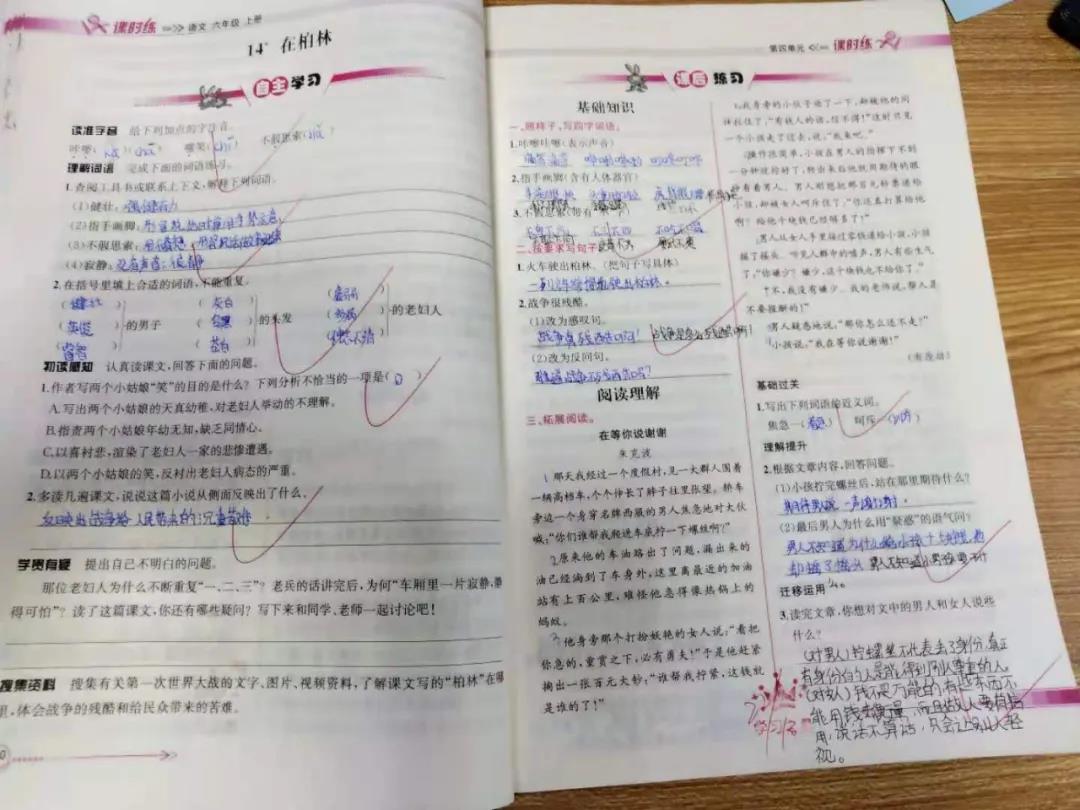 课时练 语文 六年级 上册
14* 在柏林
自主学习
读准字音 给下列加点的字注音。
理解词语 完成下面的词语练习。
1.查阅工具书或联系上下文,解释下列词语。
(1)健壮:强健有力
(2)指手画脚:
(3)不假思索:
(4)寂静:没有声音;很静
2.在括号里填上合适的词语,不能重复。
(健壮) (灰白)
(英俊)的男子 ( )的头发 ( )的老妇人
( ) (苍白)
初读感知 认真读课文,回答下面的问题。
1.作者写两个小姑娘“笑”的目的是什么?下列分析不恰当的一项是( D )
A.写出两个小姑娘的天真幼稚,对老妇人举动的不理解。
B.指责两个小姑娘年幼无知,缺乏同情心。
C.以喜衬悲,渲染了老妇人一家的悲惨遭遇。
D.以两个小姑娘的笑,反衬出老妇人病态的严重。
2.多读几遍课文,说说这篇小说从侧面反映出了什么。
反映出战争给人民带来的沉重苦难
学贵有疑 提出自己不明白的问题。
那位老妇人为什么不断重复“一、二、三”?老兵的话讲完后,为何“车厢里一片寂静,静
得可怕”?读了这篇课文,你还有哪些疑问?写下来和同学、老师一起讨论吧!
搜集资料 搜集有关第一次世界大战的文字、图片、视频资料,了解课文写的“柏林”在哪
里,体会战争的残酷和给民众带来的苦难。
第四单元 课时练
课后练习
基础知识
一、照样子,写四字词语。
1.咔嚓咔嚓(表示声音)
2.指手画脚(含有人体器官)
3.不假思索(带有“不”)
二、按要求写句子。
1.火车驶出柏林。(把句子写具体)
一列火车缓慢地驶出柏林。
2.战争很残酷。
(1)改为感叹句。
战争真残酷啊! 战争是多么残酷啊!
(2)改为反问句。
难道战争不残酷吗?
阅读理解
三、拓展阅读。
在等你说谢谢
朱克波
1那天我经过一个度假村,见一大群人围着
一辆高档车,个个伸长了脖子往里张望。轿车
旁边一个身穿名牌西服的男人焦急地对大伙
喊:“你们谁帮我躺进车底拧一下螺丝啊?”
2原来他的车油路出了问题,漏出来的
油已经淌到了车身外,这里离最近的加油
站有上百公里,难怪他急得像热锅上的
蚂蚁。
3他身旁那个打扮妖艳的女人说:“看把
你急的,重赏之下,必有勇夫!”于是他赶紧
掏出一张百元大钞,“谁帮我拧紧,这钱就
是谁的了!”
4我身旁的小孩子动了一下,却被他的同
伴拉住了:“有钱人的话,信不得!”这时只见
一个小孩走了过去,说:“我来吧。”
5操作很简单,小孩在男人的指挥下不到
一分钟就拧好了,爬出来后他就用期待的眼
神看着男人。男人刚想把那百元钞票递给
小孩,却被女人呵斥住了:“你还真打算给他
啊?给他个块钱已经够多了!”
6男人从女人手里接过零钱递给小孩,小孩
摇了摇头。听见人群中的嘘声,男人有些生气
了,“你嫌少?嫌少,这个块钱也不给你了。”
7“不,我没有嫌少。我的老师说,帮人是
不要报酬的!”
8男人疑惑地说,“那你怎么还不走?”
9小孩说:“我在等你说谢谢!”
(有改动)
基础过关
1.写出下列词语的近义词。
焦急—(着急) 呵斥—( )
理解提升
2.根据文章内容,回答问题。
(1)小孩拧完螺丝后,站在那里期待什么?
期待男人说一声谢谢。
(2)最后男人为什么用“疑惑”的语气问?
迁移运用
3.读完文章,你想对文中的男人和女人说些
什么?
(对男人)拧螺丝不代表丢了身份,真正
有身份的人是能得到别人尊重的人。
视。